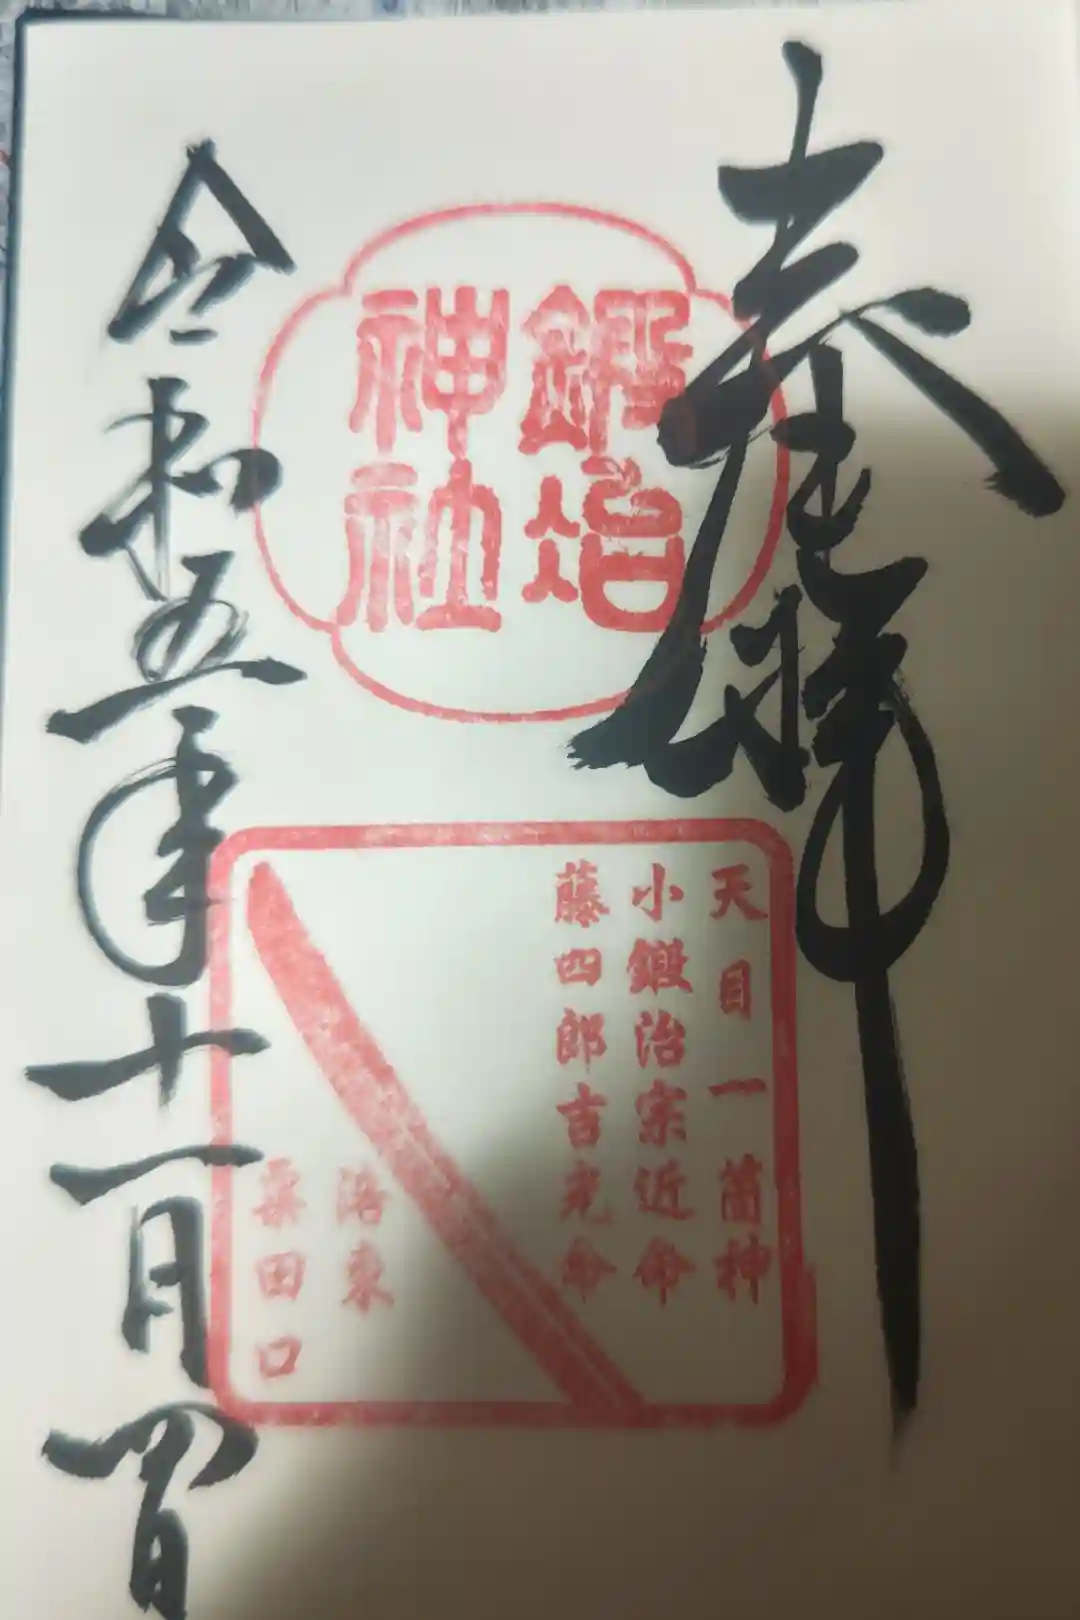 奉拝
鍛冶
神社
天目一箇神
小鍛治宗近命
藤四郎吉光命
洛東
粟田口
令和五年十一月四日